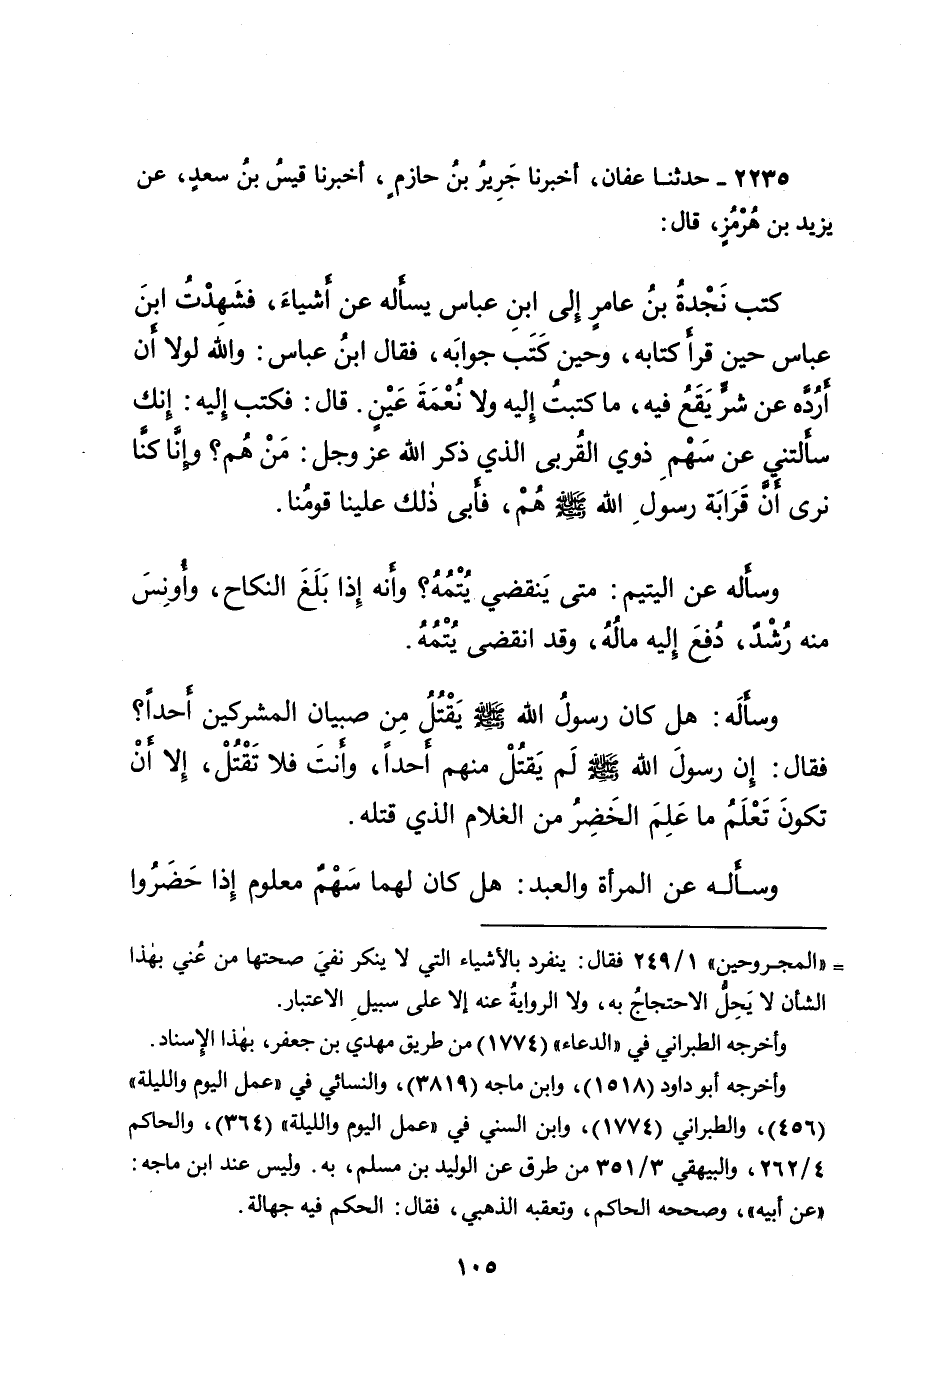 ٢٢٣٥ ـ حدثنـا عفان، أخبرنا جَرِيرُ بنُ حازمٍ، أخبرنا قيسُ بنُ سعدٍ، عن
يزيد بن هُرْمُزٍ، قال:
كتب نَجْدةُ بنُ عامرٍ إلى ابنِ عباس يسأَله عن أَشياءَ، فشَهِدْتُ ابنَ
عباس حين قرأَ كتابه، وحين كَتَب جوابَه، فقال ابنُ عباس: والله لولا أَن
أَرُدَّه عن شرٍّ يَقَعُ فيه، ما كتبتُ إليه ولا نُعْمَةَ عَيْنٍ. قال: فكتب إليه: إنك
سأَلتني عن سَهْمِ ذوي القُربى الذي ذكر الله عز وجل: مَنْ هُم؟ وإنَّا كنَّا
نرى أَنَّ قَرَابَة رسولِ الله ﷺ هُمْ، فأَبى ذٰلك علينا قومُنا.
وسأَله عن اليتيم: متى يَنقضي يُتْمُهُ؟ وأَنه إذا بَلَغَ النكاح، وأُونِسَ
منه رُشْدٌ، دُفِعَ إليه مالُهُ، وقد انقضى يُتْمُهُ.
وسأَلَه: هل كان رسولُ الله ﷺ يَقْتُلُ مِن صبيان المشركين أَحداً؟
فقال: إن رسولَ الله ﷺ لَم يَقتُلْ منهم أَحداً، وأَنتَ فلا تَقْتُلْ، إلا أَنْ
تكونَ تَعْلَمُ ما عَلِمَ الخَضِرُ من الغلام الذي قتله.
وسـأَلـه عن المرأة والعبد: هل كان لهما سَهْمٌ معلوم إذا حَضَرُوا
= «المجـروحين» ٢٤٩/١ فقال: ينفرد بالأشياء التي لا ينكر نفيَ صحتها من عُني بهٰذا
الشأن لا يَحِلُّ الاحتجاجُ به، ولا الروايةُ عنه إلا على سبيلِ الاعتبار.
وأخرجه الطبراني في «الدعاء» (١٧٧٤) من طريق مهدي بن جعفر، بهٰذا الإسناد.
وأخرجه أبو داود (١٥١٨)، وابن ماجه (٣٨١٩)، والنسائي في «عمل اليوم والليلة»
(٤٥٦)، والطبراني (١٧٧٤)، وابن السني في «عمل اليوم والليلة» (٣٦٤)، والحاكم
٢٦٢/٤، والبيهقي ٣٥١/٣ من طرق عن الوليد بن مسلم، به. وليس عند ابن ماجه:
«عن أبيه»، وصححه الحاكم، وتعقبه الذهبي، فقال: الحكم فيه جهالة.
١٠٥